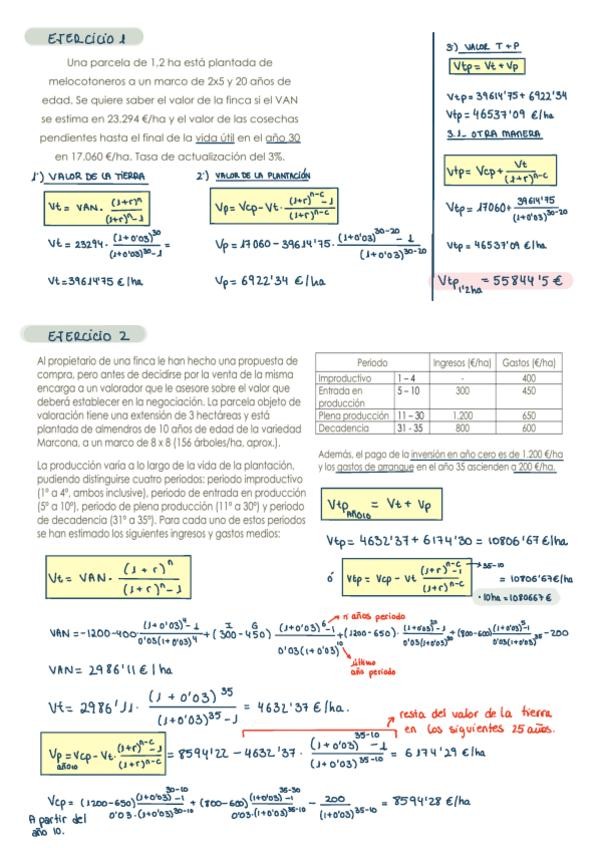 EJERCICIO 1
Una parcela de 1,2 ha está plantada de
melocotoneros a un marco de 2x5 y 20 años de
edad. Se quiere saber el valor de la finca si el VAN
se estima en 23.294 €/ha y el valor de las cosechas
pendientes hasta el final de la vida útil en el año 30
en 17.060 €/ha. Tasa de actualización del 3%.
1º) VALOR DE LA TIERRA
Vt = VAN · (1+r)^n / (1+r)^n - 1
Vt = 23294 · (1+0'03)^30 / (1+0'03)^30 - 1 =
Vt = 39614'75 €/ha
2º) VALOR DE LA PLANTACIÓN
Vp = Vcp - Vt · (1+r)^n-c - 1 / (1+r)^n-c
Vp = 17060 - 39614'75 · (1+0'03)^30-20 - 1 / (1+0'03)^30-20
Vp = 6922'34 €/ha
3) VALOR T + P
Vtp = Vt + Vp
Vtp = 39614'75 + 6922'34
Vtp = 46537'09 €/ha
3.1- OTRA MANERA
Vtp = Vcp + Vt / (1+r)^n-c
Vtp = 17060 + 39614'75 / (1+0'03)^30-20
Vtp = 46537'09 €/ha
Vtp 1'2ha = 55844'5 €
EJERCICIO 2
Al propietario de una finca le han hecho una propuesta de
compra, pero antes de decidirse por la venta de la misma
encarga a un valorador que le asesore sobre el valor que
deberá establecer en la negociación. La parcela objeto de
valoración tiene una extensión de 3 hectáreas y está
plantada de almendros de 10 años de edad de la variedad
Marcona, a un marco de 8 x 8 (156 árboles/ha, aprox.).
La producción varía a lo largo de la vida de la plantación,
pudiendo distinguirse cuatro periodos: periodo improductivo
(1º a 4º, ambos inclusive), periodo de entrada en producción
(5º a 10º), periodo de plena producción (11º a 30º) y periodo
de decadencia (31º a 35º). Para cada uno de estos periodos
se han estimado los siguientes ingresos y gastos medios:
Periodo Ingresos (€/ha) Gastos (€/ha)
Improductivo 1 - 4 - 400
Entrada en producción 5 - 10 300 450
Plena producción 11 - 30 1.200 650
Decadencia 31 - 35 800 600
Además, el pago de la inversión en año cero es de 1.200 €/ha
y los gastos de arranque en el año 35 ascienden a 200 €/ha.
Vtp AÑO10 = Vt + Vp
Vtp = 4632'37 + 6174'30 = 10806'67 €/ha
ó Vtp = Vcp - Vt (1+r)^n-c - 1 / (1+r)^n-c → 35-10 = 10806'67€/ha
· 10ha = 108066'7 €
Vt = VAN · (1+r)^n / (1+r)^n - 1
VAN = -1200 - 400 · (1+0'03)^4 - 1 / 0'03(1+0'03)^4 + (300 - 450) · (1+0'03)^6 - 1 / 0'03(1+0'03)^10 + (1200 - 650) · (1+0'03)^20 - 1 / 0'03(1+0'03)^30 + (800-600) (1+0'03)^5 - 1 / 0'03(1+0'03)^35 - 200
I G
nº años periodo
último
año periodo
VAN = 2986'11 € / ha
Vt = 2986'11 · (1+0'03)^35 / (1+0'03)^35 - 1 = 4632'37 €/ha.
resta del valor de la tierra
en los siguientes 25 años.
Vp AÑO10 = Vcp - Vt · (1+r)^n-c - 1 / (1+r)^n-c = 8594'22 - 4632'37 · (1+0'03)^35-10 - 1 / (1+0'03)^35-10 = 6174'29 €/ha
Vcp = (1200-650) (1+0'03)^30-10 - 1 / 0'03·(1+0'03)^30-10 + (800-600) (1+0'03)^35-30 - 1 / 0'03·(1+0'03)^35-10 - 200 / (1+0'03)^35-10 = 8594'28 €/ha
A partir del
año 10.